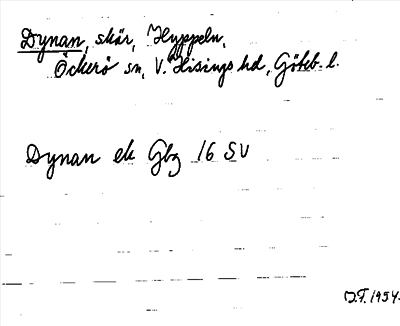 Dynan, skär, Hyppeln,
Öckerö sn, V. Hisings hd, Göteb. l.
Dynan ek Gbg 16 SV
J.F. 1954.